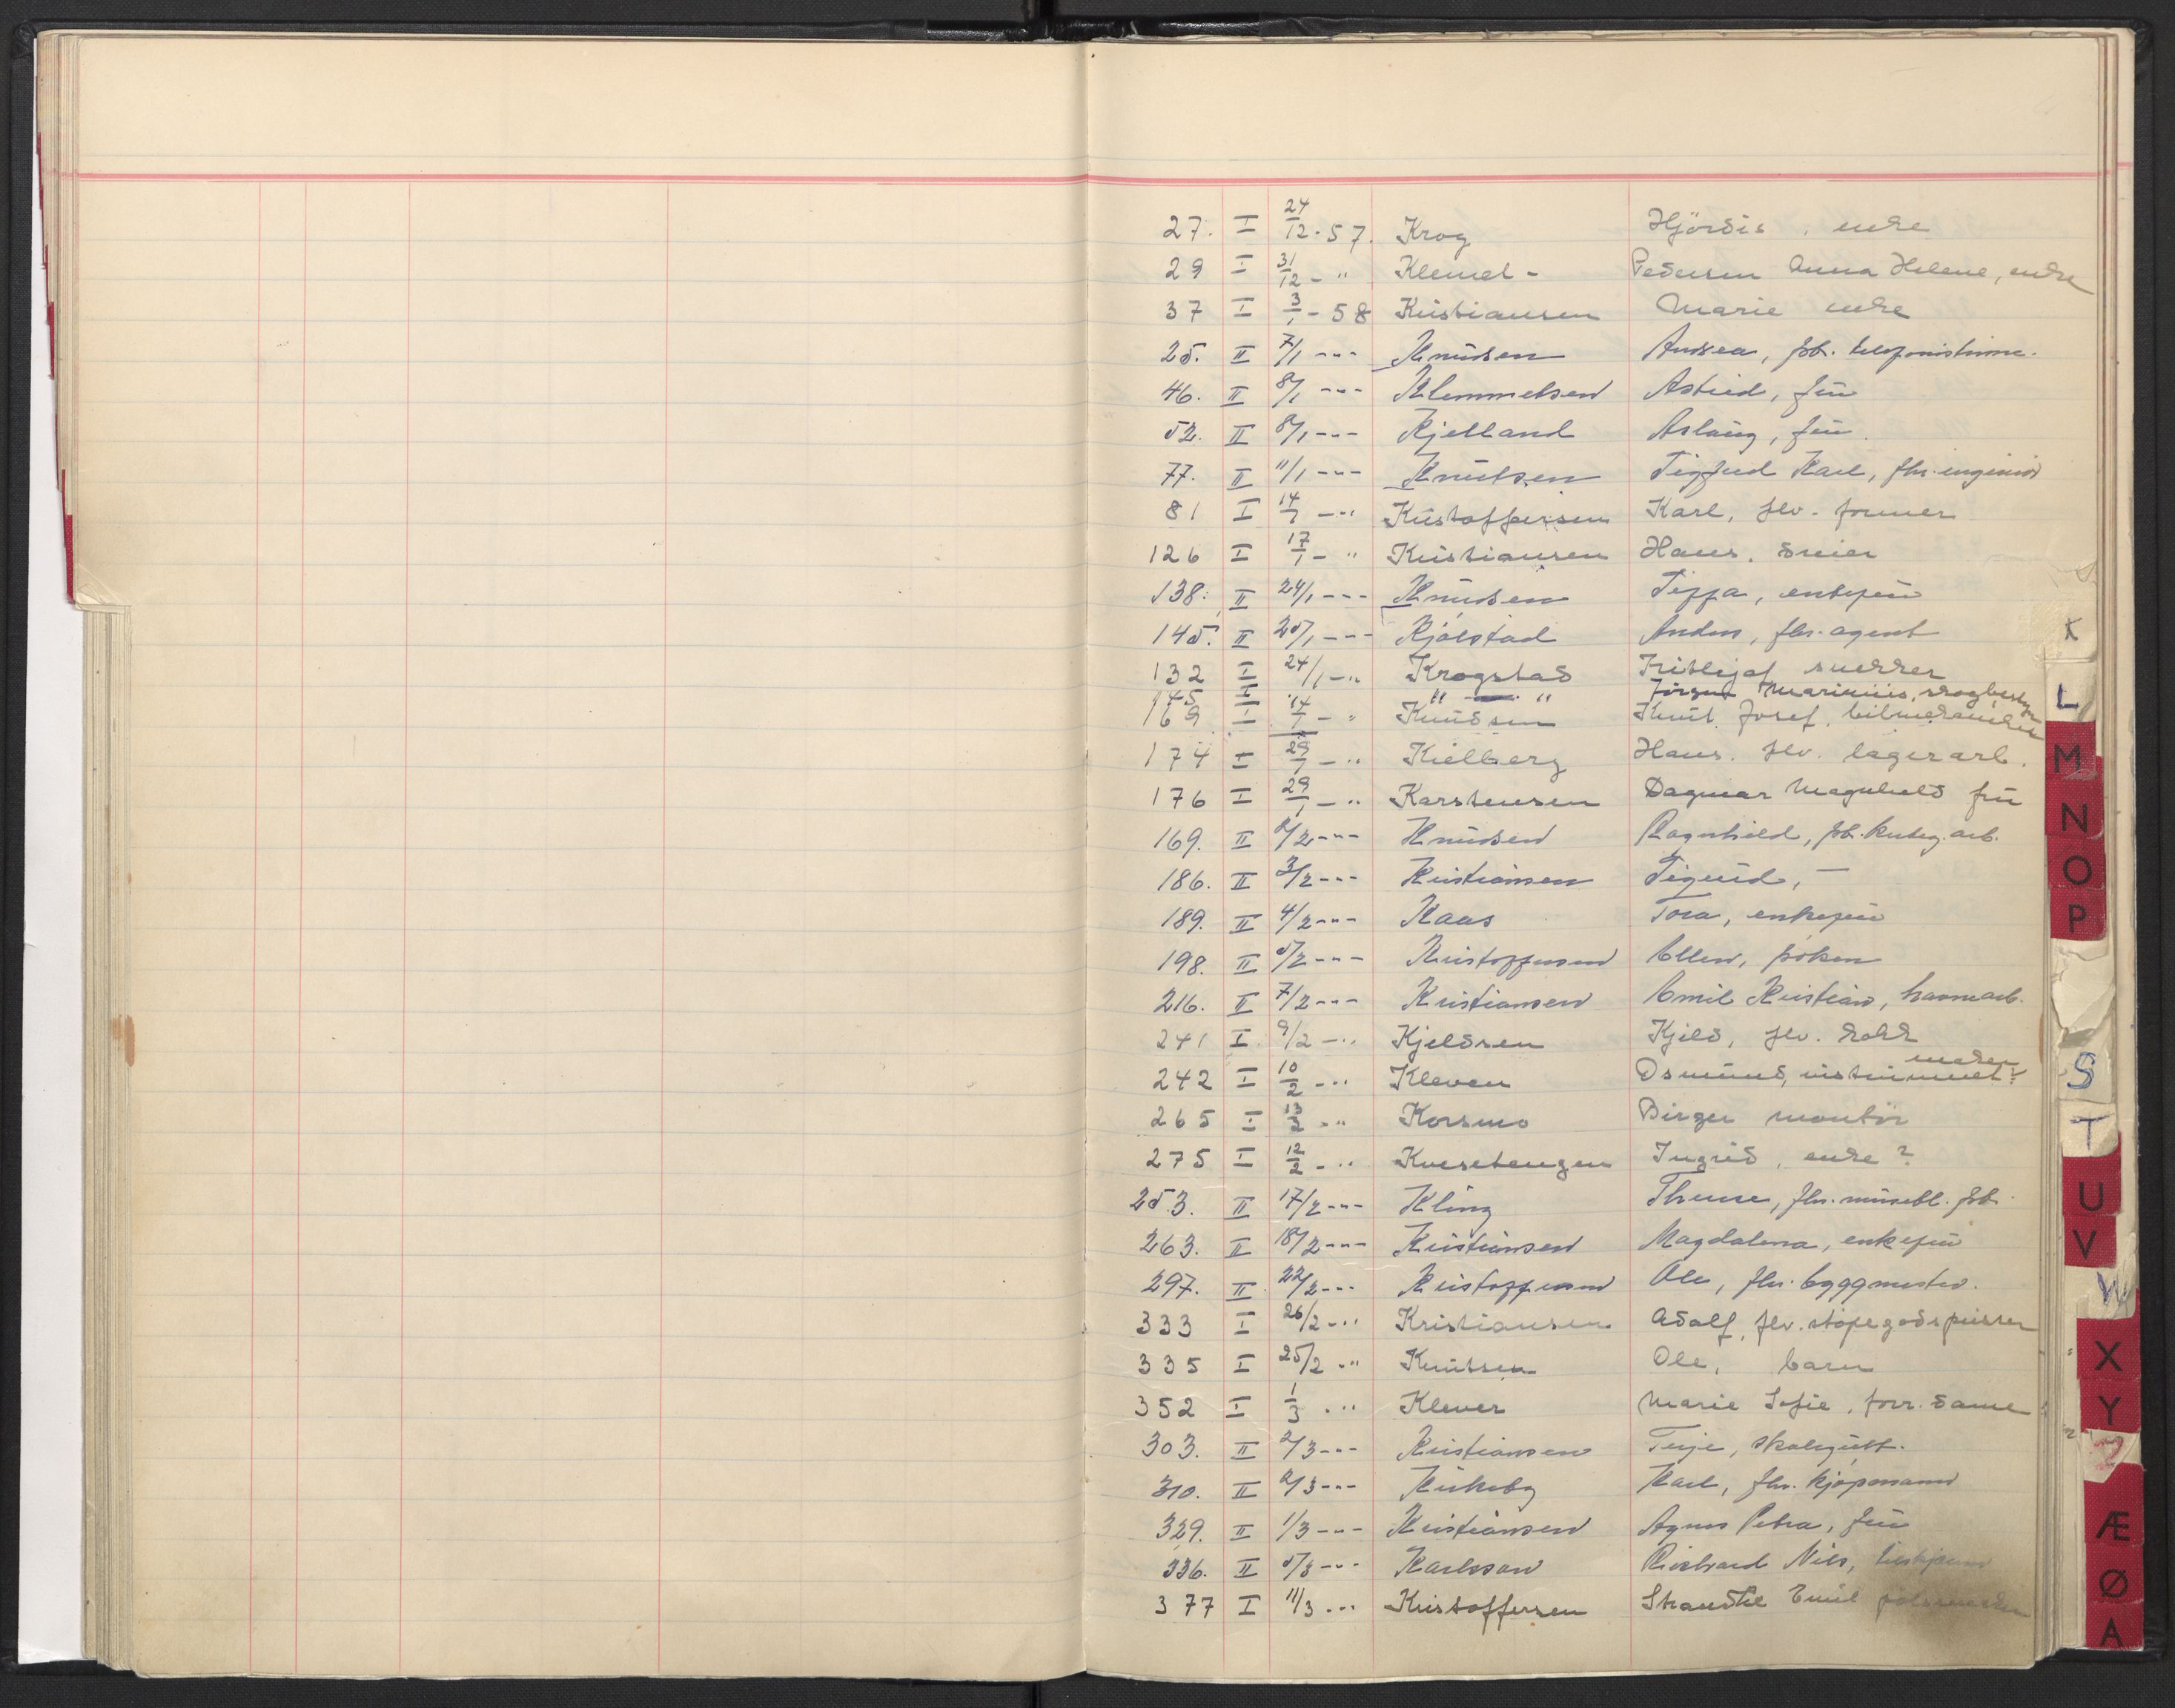 27. I 24/12-57. Krog Hjördis, enke
29 I 31/12 - " Klemet - Pedersen Anna Helene, enke
37 I 3/1 - 58 Kristiansen Marie enke
25. II 7/1 -"- Knudsen Andrea, fhv. telefonistinne.
46. II 8/1 -"- Klemmetsen Astrid, frü
52. II 8/1 -"- Kjelland Aslaug, frü.
77. II 11/1 -"- Knutsen Sigfred Karl, fhv. ingeniør
81 I 14/1 -" Kristoffersen Karl, fhv. former
126 I 17/1 - " Kristiansen Hans. dreier
138. II 24/1 -"- Knudsen enkefrü
145. II 25/1 -"- Kjølstad Anders, fhv. agent
132 I 24/1 -" Krogstad Fritjof snekker
145 I " — " Jørgen Marinius, skogbestyr
169 I 14/1 - " Knudsen Knut Josef, bilmekaniker
174 I 29/1 -" Kielberg Hans. fhv. lagerarb.
176 I 29/1 -" Karstensen Dagmar Magnhild frü
169. II 2/2 -"- Knudsen Ragnhild, arb.
186. II 3/2 -"- Kristiansen Sigurd, —
189. II 4/2 -"- Kaas Tora, enkefrü
198. II 5/2 -"- Kristoffersen Ellen, frøken
216. II 7/2 -"- Kristiansen Emil Kristian, havnearb.
241 I 9/2 -" Kjeldsen Kjeld, fhv. kokk
242 I 10/2 -" Kleven Osmund, instrumentmaker
265 I 13/2 -" Korsmo Birger montör
275 I 12/2 -" Kvesetengen Ingrid, enke?
253. II 17/2 -"- Kling fhv.
263. II 18/2 -"- Kristiansen Magdalena, enkefrü
297. II 22/2 -"- Kristoffersen Ole, fhv. byggmester.
333 I 26/2 -" Kristiansen Adolf, fhv. støpegodspusser
335 I 25/2 -" Knutsen Ole, barn
352 I 1/3 -" Klever Marie Sofie, forr. dame
303. II 2/3 -"- Kristiansen Terje, skolegutt.
310. II 2/3 -"- Kirkeby Karl, fhv. kjøpmann
329. II 1/3 -"- Kristiansen Agnes Petra, frü
336. II 5/3 -"- Karlsson Rickard Nils,
377 I 11/3 -" Kristoffersen Emil pølsemaker
K
L
M
N
O
P
S
T
U
V
W
X
Y
Z
Æ
Ø
A